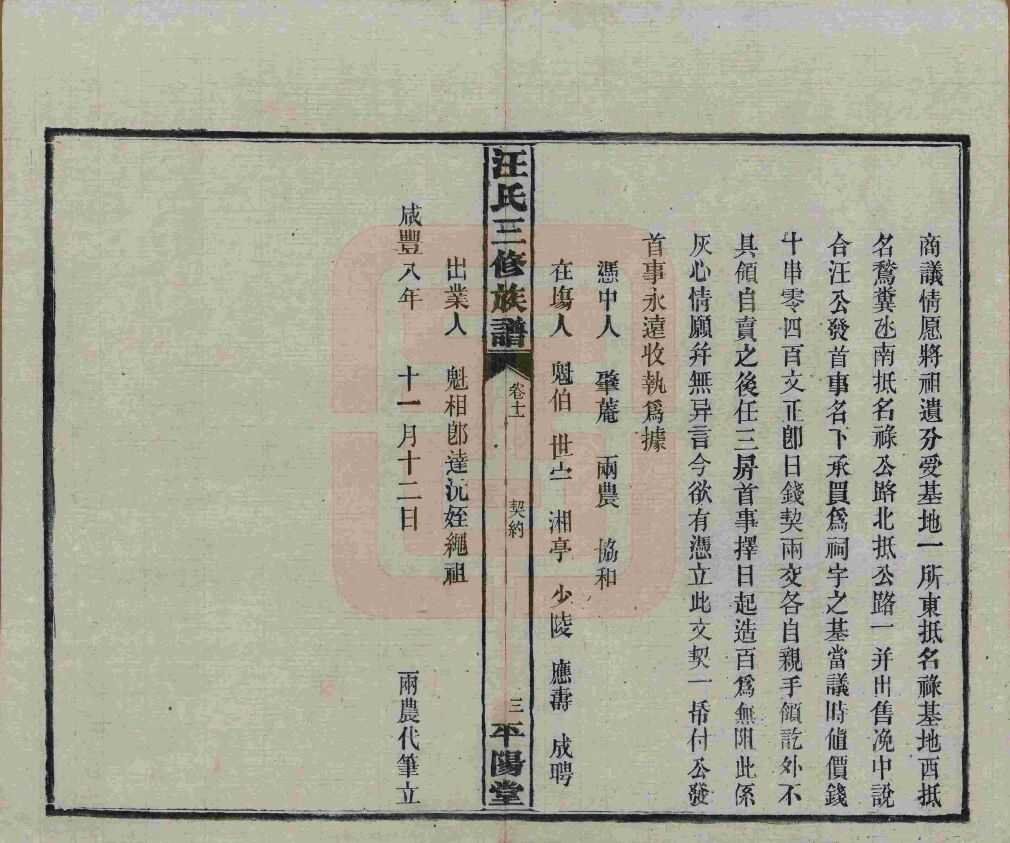 商議情愿將祖遺分受基地一所東抵名祿基地西抵
名騖糞氹南抵名祿公路北抵公路一并出售浼中說
合汪公發首事名下承買爲祠宇之基當議時值價錢
十串零四百文正卽日錢契兩交各自親手領訖外不
具領自賣之後任三房首事擇日起造百爲無阻此係
灰心情願幷無异言今欲有憑立此文契一帋付公發
首事永遠收執爲據
憑中人 肇菴 兩農 協和
在塲人 魁伯 世 湘亭 少陵 應壽 成聘
汪氏三修族譜 卷十一 契約 三 平陽堂
出業人 魁相郎達沅姪繩祖
咸豐八年 十一月十二日 兩農代筆立